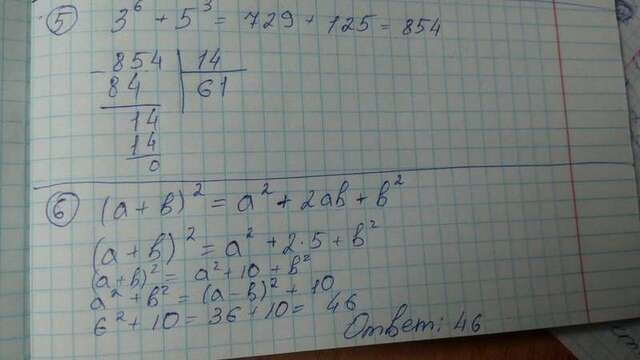 ⑤ 3⁶ + 5³ = 729 + 125 = 854
- 854 | 14
84 | 61
14
14
0
⑥ (a + b)² = a² + 2ab + b²
(a + b)² = a² + 2·5 + b²
(a+b)² = a² + 10 + b²
a² + b² = (a - b)² + 10
6² + 10 = 36 + 10 = 46
Ответ: 46